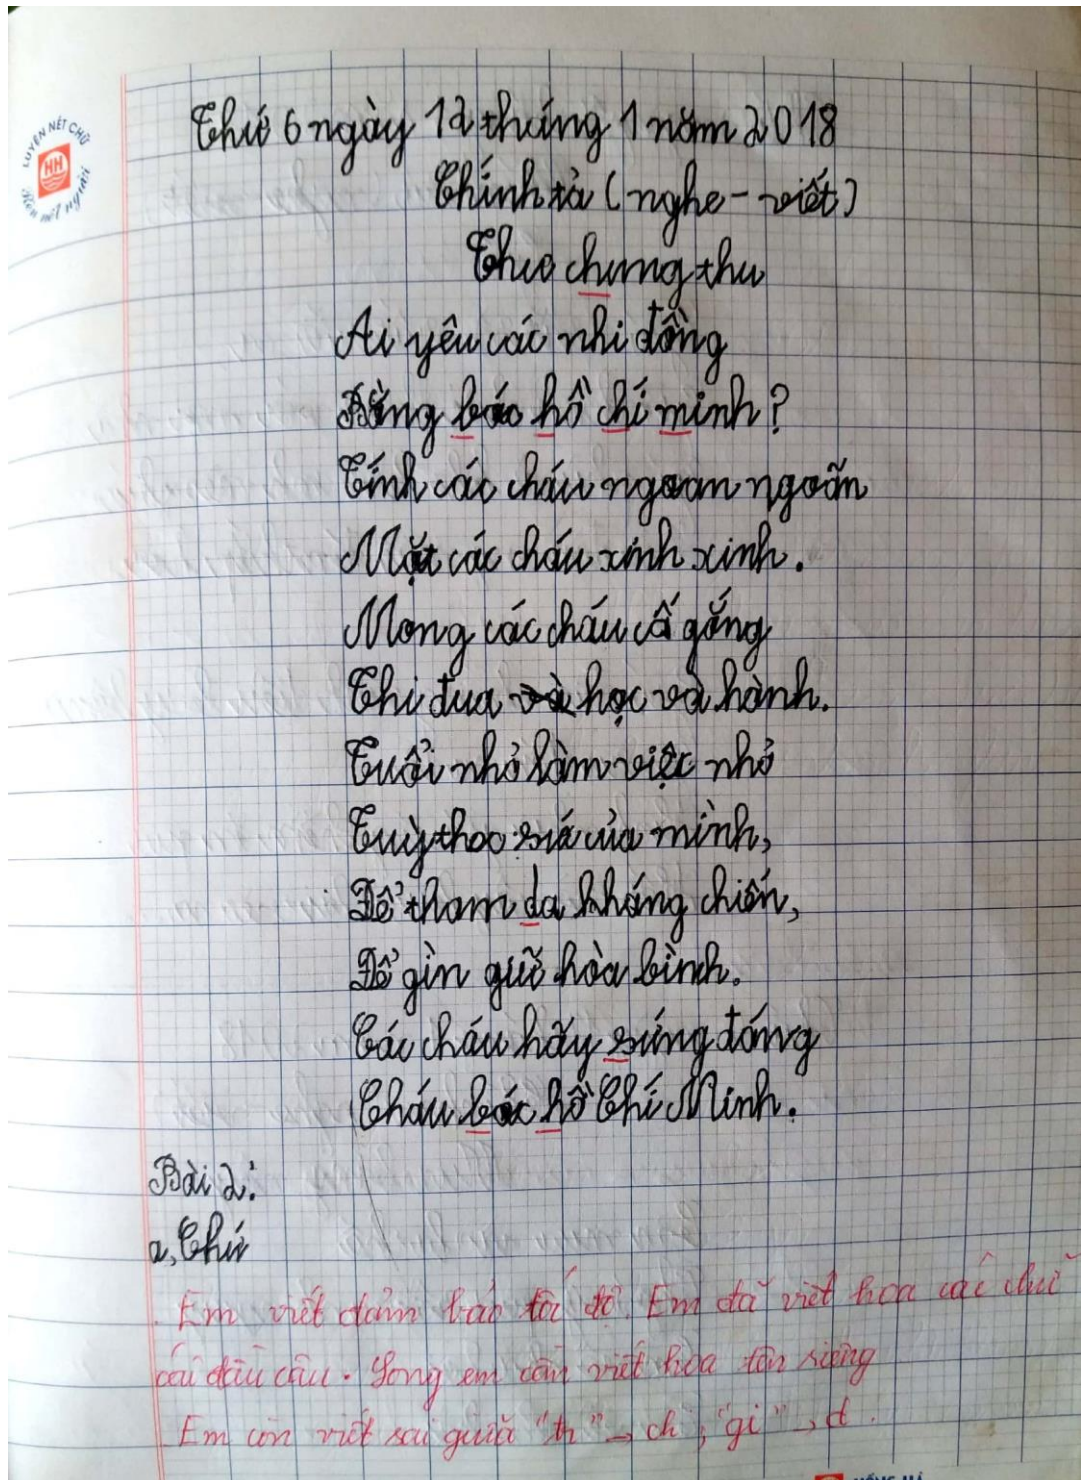 LUYỆN NÉT CHỮ
HH
Rèn nết người
Thứ 6 ngày 12 tháng 1 năm 2018
Chính tả (nghe - viết)
Thư chung thu
Ai yêu các nhi đồng
Bằng bác hồ chí minh?
Tính các cháu ngoan ngoãn
Mặt các cháu xinh xinh.
Mong các cháu cố gắng
Thi đua học và hành.
Tuổi nhỏ làm việc nhỏ
Tuỳ thoo sứ của mình,
Để tham da kháng chiến,
Để gìn giữ hòa bình.
Các cháu hãy sứng đáng
Cháu bác hồ Chí Minh.
Bài 2:
a, Chứ
Em viết đảm bảo tốc độ. Em đã viết hoa các chữ
cái đầu câu. Song em cần viết hoa tên riêng
Em còn viết sai giữa "tr" → ch, "gi" → d.
HỒNG HÀ